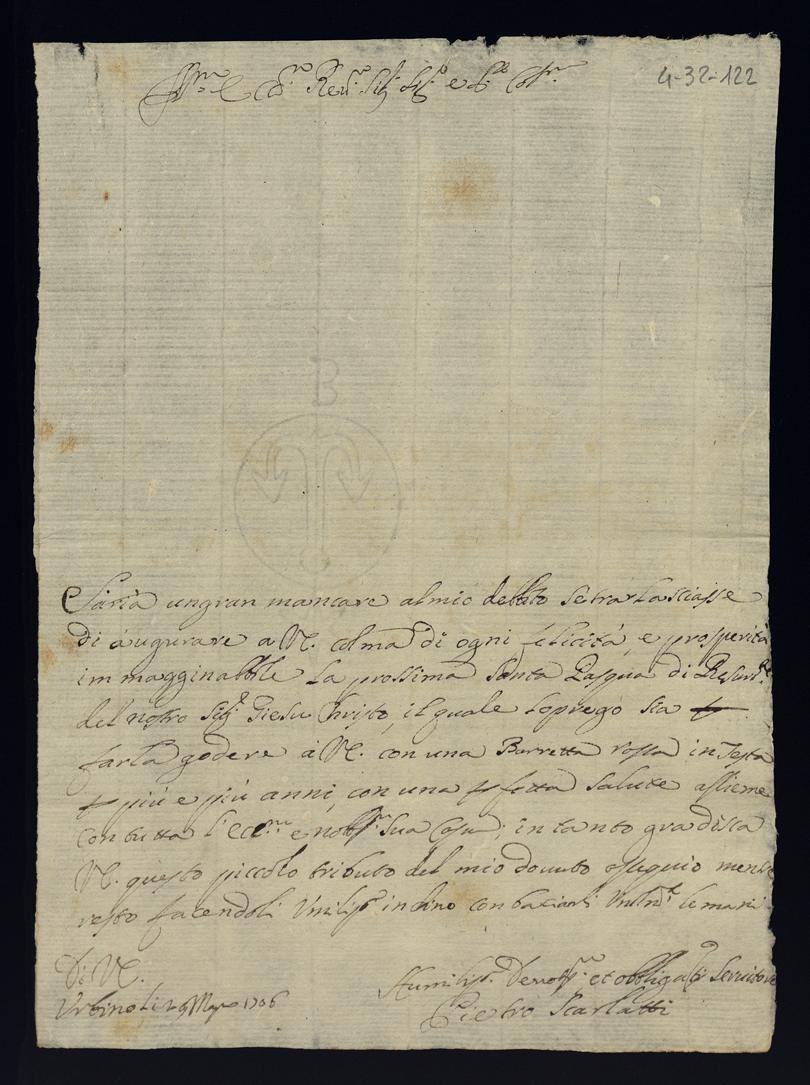 4-32-122
Ill.mo e Rev.mo Sig. Sig.r e P.ne Col.mo
Saria un gran mancare al mio debito se tralasciasse
di augurare a V.E. colma di ogni felicità, e prosperità
immagginabbile la prossima Santa Pasqua di Resurr.ne
del nostro Sig.r Giesu Christo, il quale lo prego sia
farla godere à V.E. con una Barretta rossa in Testa
più e più anni, con una salute assieme
con tutta l'ecc.ma e nobb.ma sua Casa; in tanto gradisca
V.E. questo piccolo tributo del mio dovuto ossequio mentre
resto facendoli Umiliss.o inchino con baciarli le mani
Di V.E.
Urbino li 29 Marzo 1706
Humiliss.o Devotiss.mo et obbligat.o Servitore
Pietro Scarlatti
B